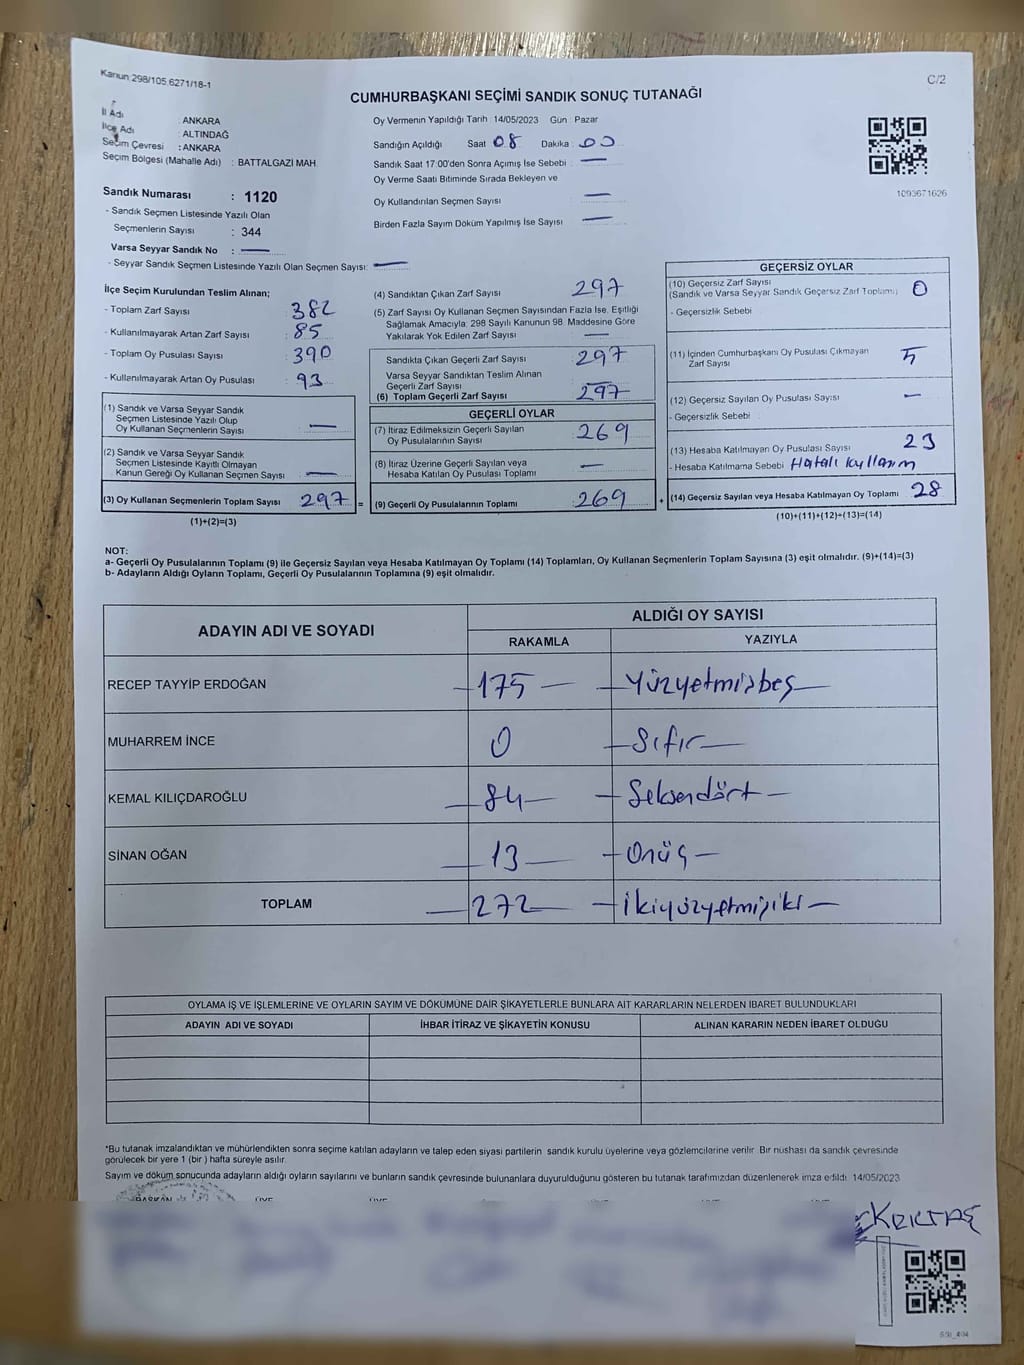 Kanun 298/105 6271/18-1
C/2
CUMHURBAŞKANI SEÇİMİ SANDIK SONUÇ TUTANAĞI
İl Adı : ANKARA
İlçe Adı : ALTINDAĞ
Seçim Çevresi : ANKARA
Seçim Bölgesi (Mahalle Adı) : BATTALGAZİ MAH.
Sandık Numarası : 1120
- Sandık Seçmen Listesinde Yazılı Olan
Seçmenlerin Sayısı : 344
Varsa Seyyar Sandık No : —
- Seyyar Sandık Seçmen Listesinde Yazılı Olan Seçmen Sayısı: —
Oy Vermenin Yapıldığı Tarih : 14/05/2023 Gün : Pazar
Sandığın Açıldığı Saat 08 Dakika 00
Sandık Saat 17:00'den Sonra Açımış İse Sebebi : —
Oy Verme Saati Bitiminde Sırada Bekleyen ve
Oy Kullandırılan Seçmen Sayısı —
Birden Fazla Sayım Döküm Yapılmış İse Sayısı —
1093671626
İlçe Seçim Kurulundan Teslim Alınan;
- Toplam Zarf Sayısı : 382
- Kullanılmayarak Artan Zarf Sayısı : 85
- Toplam Oy Pusulası Sayısı : 390
- Kullanılmayarak Artan Oy Pusulası : 93
(1) Sandık ve Varsa Seyyar Sandık
Seçmen Listesinde Yazılı Olup
Oy Kullanan Seçmenlerin Sayısı —
(2) Sandık ve Varsa Seyyar Sandık
Seçmen Listesinde Kayıtlı Olmayan
Kanun Gereği Oy Kullanan Seçmen Sayısı —
(3) Oy Kullanan Seçmenlerin Toplam Sayısı 297 =
(1)+(2)=(3)
(4) Sandıktan Çıkan Zarf Sayısı 297
(5) Zarf Sayısı Oy Kullanan Seçmen Sayısından Fazla İse, Eşitliği
Sağlamak Amacıyla; 298 Sayılı Kanunun 98. Maddesine Göre
Yakılarak Yok Edilen Zarf Sayısı —
Sandıkta Çıkan Geçerli Zarf Sayısı : 297
Varsa Seyyar Sandıktan Teslim Alınan
Geçerli Zarf Sayısı
(6) Toplam Geçerli Zarf Sayısı : 297
GEÇERLİ OYLAR
(7) İtiraz Edilmeksizin Geçerli Sayılan
Oy Pusulalarının Sayısı : 269
(8) İtiraz Üzerine Geçerli Sayılan veya
Hesaba Katılan Oy Pusulaları Toplamı —
(9) Geçerli Oy Pusulalarının Toplamı : 269 +
GEÇERSİZ OYLAR
(10) Geçersiz Zarf Sayısı
(Sandık ve Varsa Seyyar Sandık Geçersiz Zarf Toplamı) 0
- Geçersizlik Sebebi :
(11) İçinden Cumhurbaşkanı Oy Pusulası Çıkmayan
Zarf Sayısı 5
(12) Geçersiz Sayılan Oy Pusulası Sayısı —
- Geçersizlik Sebebi :
(13) Hesaba Katılmayan Oy Pusulası Sayısı 23
- Hesaba Katılmama Sebebi Hatalı kullanım
(14) Geçersiz Sayılan veya Hesaba Katılmayan Oy Toplamı 28
(10)+(11)+(12)+(13)=(14)
NOT:
a- Geçerli Oy Pusulalarının Toplamı (9) ile Geçersiz Sayılan veya Hesaba Katılmayan Oy Toplamı (14) Toplamları, Oy Kullanan Seçmenlerin Toplam Sayısına (3) eşit olmalıdır. (9)+(14)=(3)
b- Adayların Aldığı Oyların Toplamı, Geçerli Oy Pusulalarının Toplamına (9) eşit olmalıdır.
ADAYIN ADI VE SOYADI
ALDIĞI OY SAYISI
RAKAMLA YAZIYLA
RECEP TAYYİP ERDOĞAN —175— —Yüzyetmişbeş—
MUHARREM İNCE 0 —Sıfır—
KEMAL KILIÇDAROĞLU —84— —Seksendört—
SİNAN OĞAN —13— —Onüç—
TOPLAM —272— —İkiyüzyetmişiki—
OYLAMA İŞ VE İŞLEMLERİNE VE OYLARIN SAYIM VE DÖKÜMÜNE DAİR ŞİKAYETLERLE BUNLARA AİT KARARLARIN NELERDEN İBARET BULUNDUKLARI
ADAYIN ADI VE SOYADI İHBAR İTİRAZ VE ŞİKAYETİN KONUSU ALINAN KARARIN NEDEN İBARET OLDUĞU
*Bu tutanak imzalandıktan ve mühürlendikten sonra seçime katılan adayların ve talep eden siyasi partilerin sandık kurulu üyelerine veya gözlemcilerine verilir. Bir nüshası da sandık çevresinde
görülecek bir yere 1 (bir ) hafta süreyle asılır.
Sayım ve döküm sonucunda adayların aldığı oyların sayılarını ve bunların sandık çevresinde bulunanlara duyurulduğunu gösteren bu tutanak tarafımızdan düzenlenerek imza edildi. 14/05/2023
BAŞKAN ÜYE ÜYE